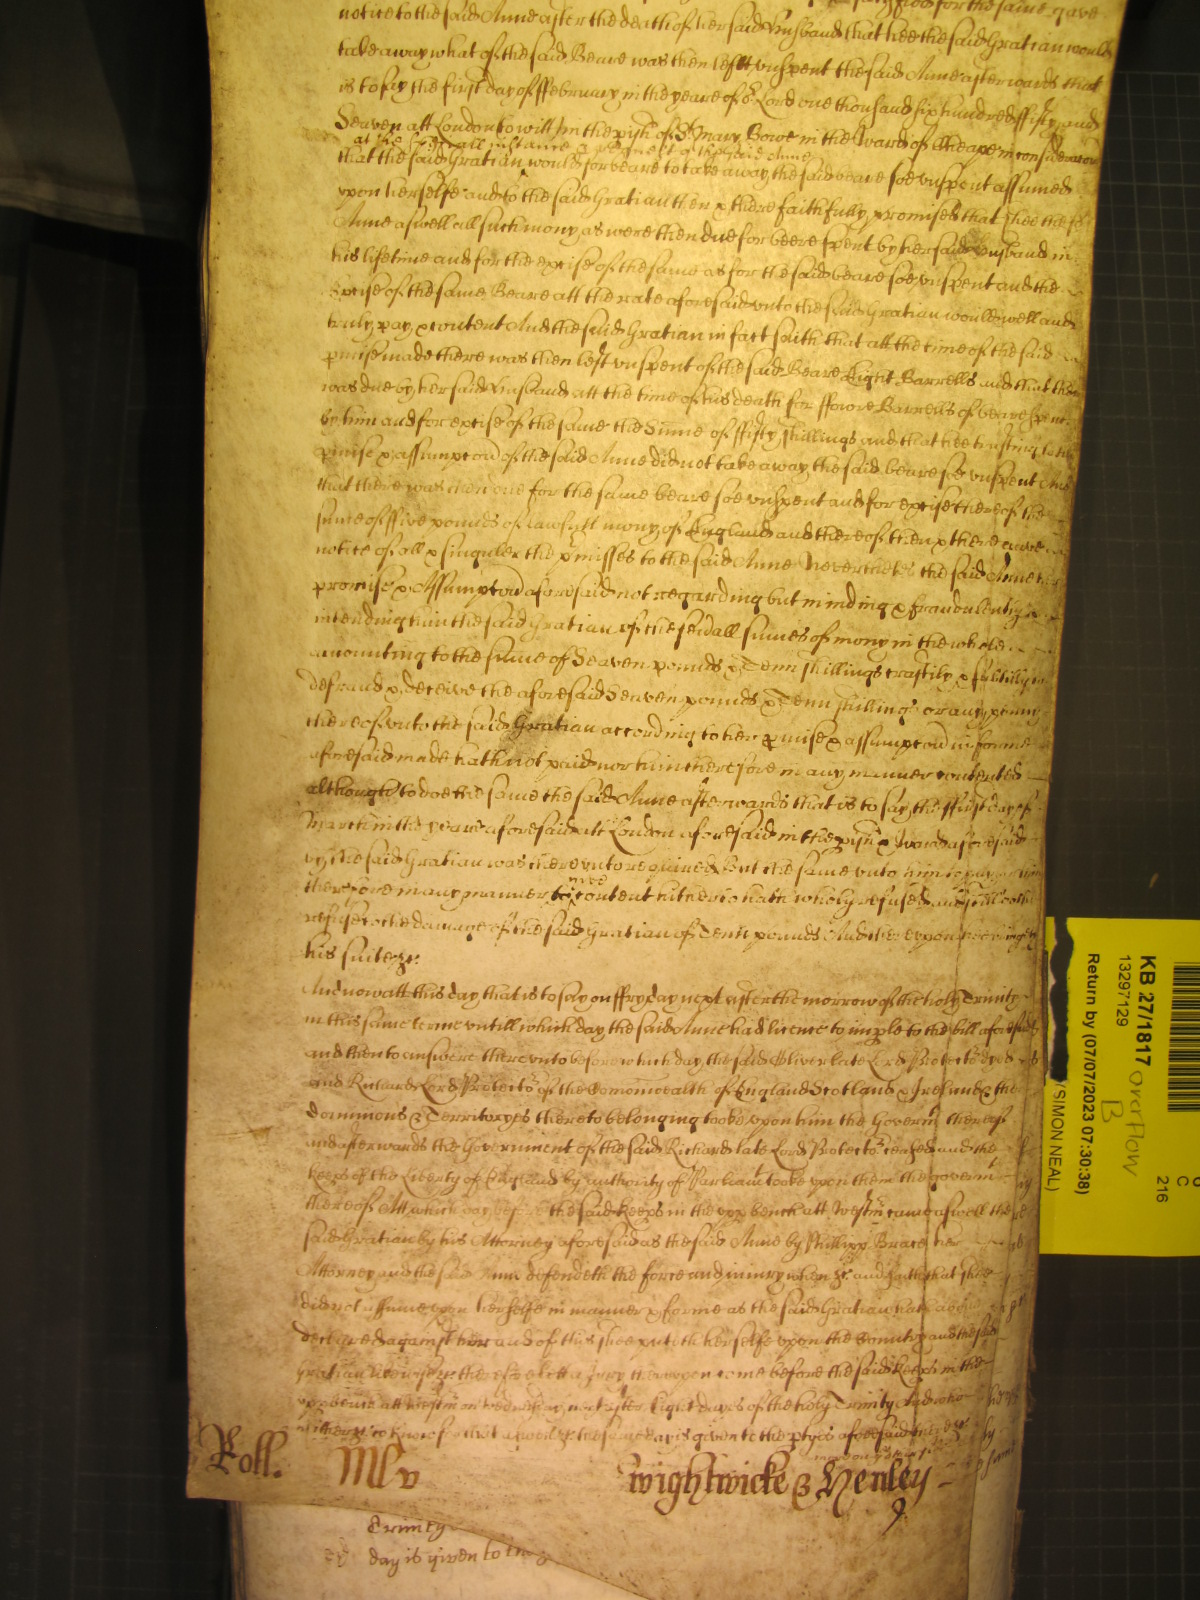 for the same gave
notice to the said Anne after the death of her said Husband that hee the said Gratian would
take away what of the said Beare was then left vnspent the said Anne afterwards that
is to say the first day of ffebruary in the yeare of or Lord one thousand six hundred ffifty and
Seaven att London to witt in the pish of St Mary Bowe in the Ward of Cheape in consideracon
at the speciall instance & request of the said Anne
that the said Gratian would forbeare to take away the said beare soe vnspent assumed
vpon herselfe and to the said Gratian then & there faithfully promised that shee the sd
Anne aswell all such mony as were then due for beere spent by her said Husband in
his lifetime and for the excise of the same as for the said beare soe vnspent and the
Excise of the same Beare att the rate aforesaid vnto the said Gratian would well and
truly pay & content And the said Gratian in fact saith that att the time of the said
pmise made there was then left vnspent of the said Beare Eight Barrells and that there
was due by her said Husband att the time of his death for ffowre Barrells of beare spent
by him and for excise of the same the Sume of ffifty shillings and that hee trusting to the
pmise & assumpcon of the said Anne did not take away the said beare soe vnspent And
that there was then due for the same beare soe vnspent and for excise thereof the
sume of ffive pounds of lawfull mony of England and thereof then & there gave
notice of all & singuler the pmisses to the said Anne Neverthelesse the said Anne her
promise & Assumpcon aforesaid not regarding but minding & fraudulently
intending him the said Gratian of the sevall sumes of mony in the whole
amounting to the sume of Seaven pounds & Tenn shillings craftily & subtilly to
defraud & deceive the aforesaid Seaven pounds & Tenn shillings or any penny
thereof vnto the said Gratian according to her pmise & assumpcon in forme
aforesaid made hath not paid nor him therefore in any manner contented
although to doe the same the said Anne afterwards that is to say the ffirst day of
March in the yeare aforesaid att London aforesaid in the pish & Ward aforesaid
by the said Gratian was therevnto required but the same vnto him to pay or him
therefore in any manner to content hitherto hath wholy refused and still doth
refuse to the damage of the said Gratian of Tenn pounds And therevpon hee bringeth
his suite &c.
And now att this day that is to say on ffryday next after the morrow of the holy Trinity
in this same terme vntill which day the said Anne had licence to imple to the bill aforesaid
and then to answere therevnto before which day the said Oliver late Lord Protector dyed
and Richard Lord Protector of the Comonwealth of England Scotland & Ireland & the
dominions & Territoryes thereto belonging tooke vpon him the Governmt thereof
and afterwards the Government of the said Richard late Lord Protector ceased and the
Keeps of the Liberty of England by authority of Parliamt tooke vpon them the governmt
thereof Att which day before the said Keeps in the vpp bench att Westm came aswell the
said Gratian by his Attorney aforesaid as the said Anne by Phillipp Brace her
Attorney and the said Anne defendeth the force and iniury when &c. and saith that shee
did not assume vpon herselfe in manner & forme as the said Gratian hath above
declared against her and of this shee putteth herselfe vpon the Country and the said
Gratian likewise &c therefore lett a Jury therevpon come before the said Keeps in the
vpp bench att Westm on Wednesday next after Eight dayes of the holy Trinity And who
neither &c to know &c the same day is given to the ptyes aforesaid there &c
Roll.
MCv
Wightwicke & Henley
Trinity
day is given to the
KB 27/1817 overflow B
13297129
Return by (07/07/2023 07:30:38)
(SIMON NEAL)
C
216